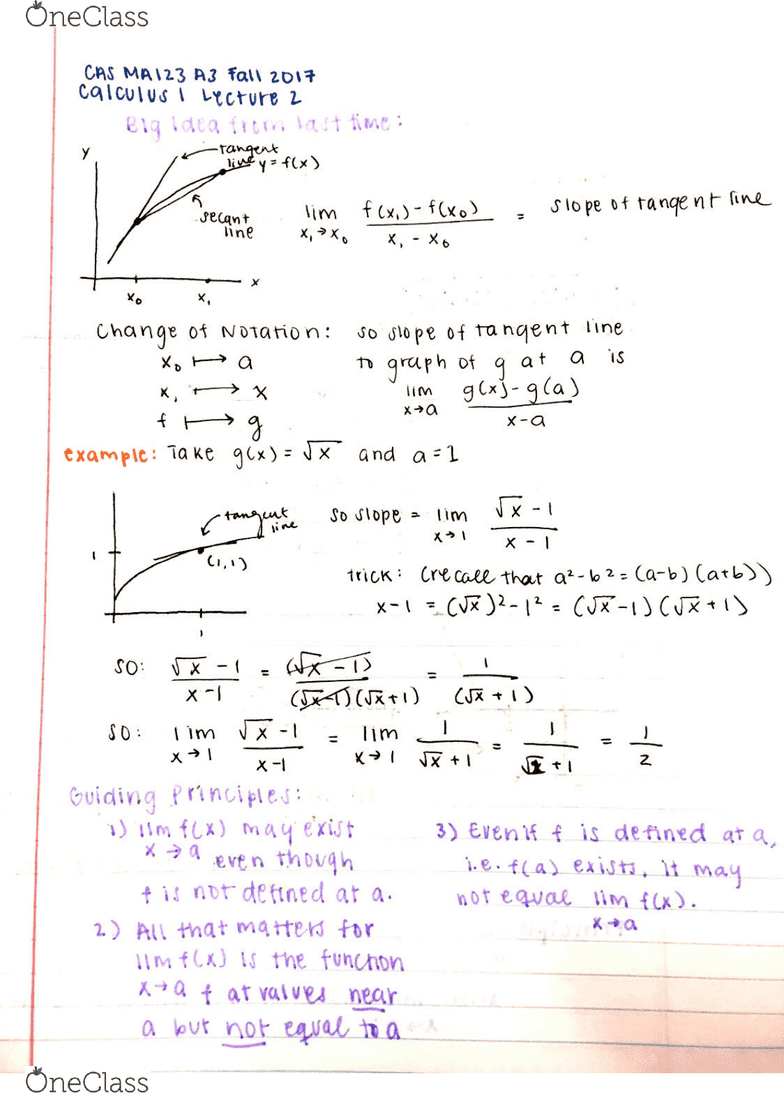 OneClass
CAS MA123 A3 Fall 2017
Calculus 1 Lecture 2
Big Idea from last time:
y
tangent
line y = f(x)
secant
line
x₀ x₁ x
lim f(x₁) - f(x₀) = slope of tangent line
x₁ → x₀ x₁ - x₀
Change of Notation: so slope of tangent line
x₀ ↦ a to graph of g at a is
x₁ ↦ x lim g(x) - g(a)
x→a x-a
f ↦ g
example: Take g(x) = √x and a = 1
tangent
line
1
(1,1)
1
so slope = lim √x - 1
x→1 x - 1
trick: (recall that a² - b² = (a-b)(a+b))
x-1 = (√x)² - 1² = (√x - 1)(√x + 1)
SO: √x - 1 = (√x - 1) = 1
x - 1 (√x-1)(√x+1) (√x + 1)
SO: lim √x - 1 = lim 1 = 1 = 1
x→1 x-1 x→1 √x + 1 √1 + 1 2
Guiding Principles:
1) lim f(x) may exist
x→a even though
f is not defined at a.
2) All that matters for
lim f(x) is the function
x→a f at values near
a but not equal to a
3) Even if f is defined at a,
i.e. f(a) exists, it may
not equal lim f(x).
x→a
OneClass